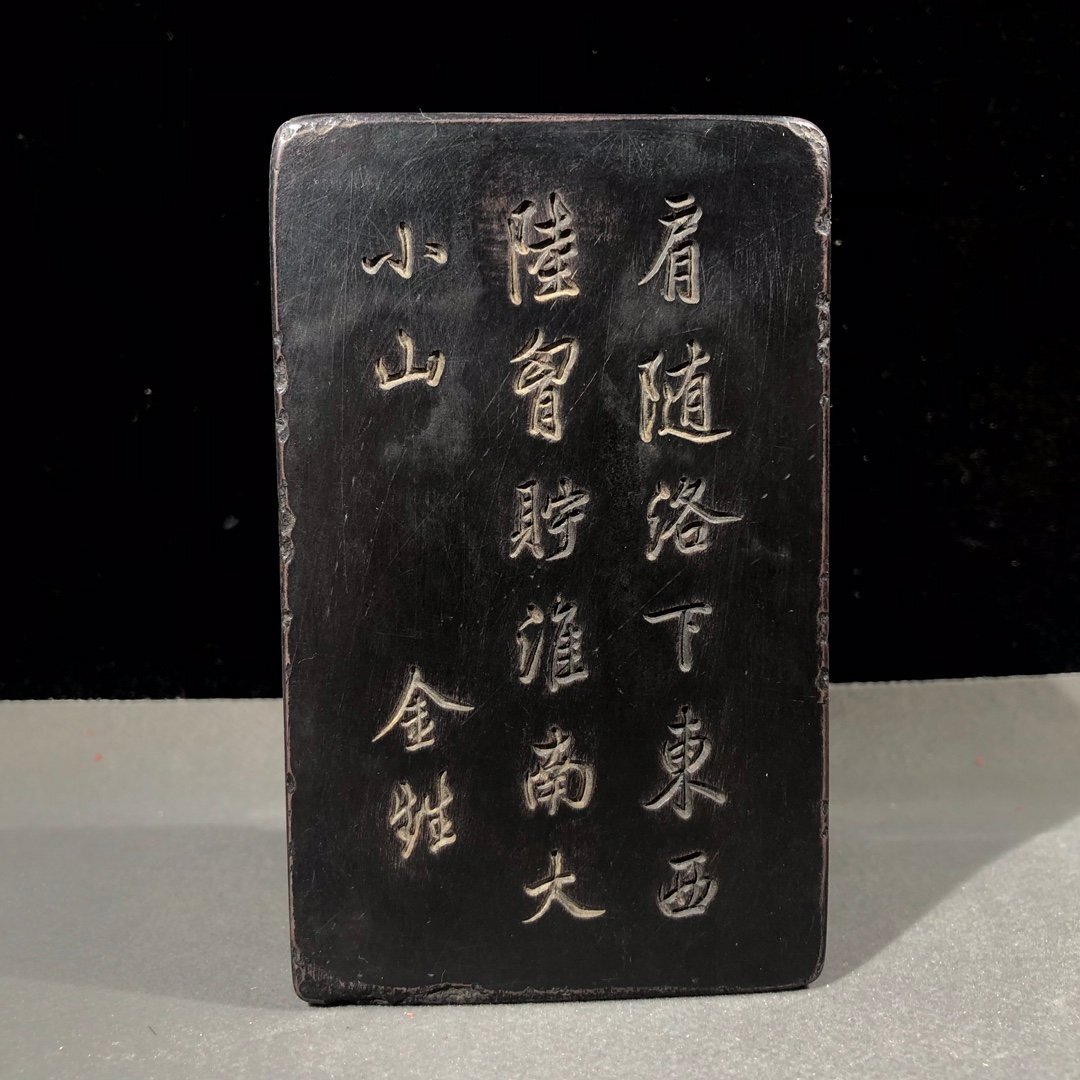 肩随洛下東西
陸胷貯淮南大
小山 金甡